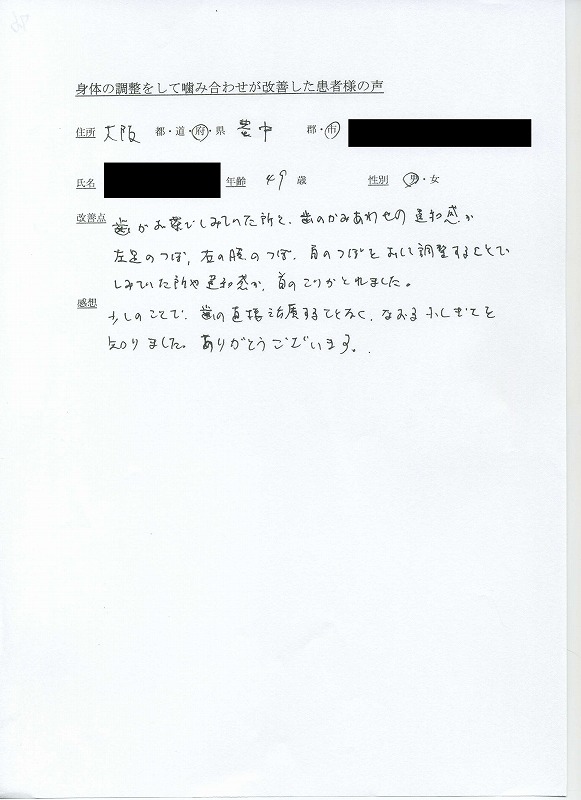 身体の調整をして噛み合わせが改善した患者様の声
住所 大阪 都・道・府・県 豊中 郡・市
氏名 年齢 49 歳 性別 男・女
改善点 歯がお茶でしみていた所と、歯のかみあわせの違和感が
左足のつぼ、右の腰のつぼ、肩のつぼをおして調整することで
しみていた所や違和感が、首のこりがとれました。
感想 少しのことで、歯の直接治療することなく、なおるふしぎさを
知りました。ありがとうございます。